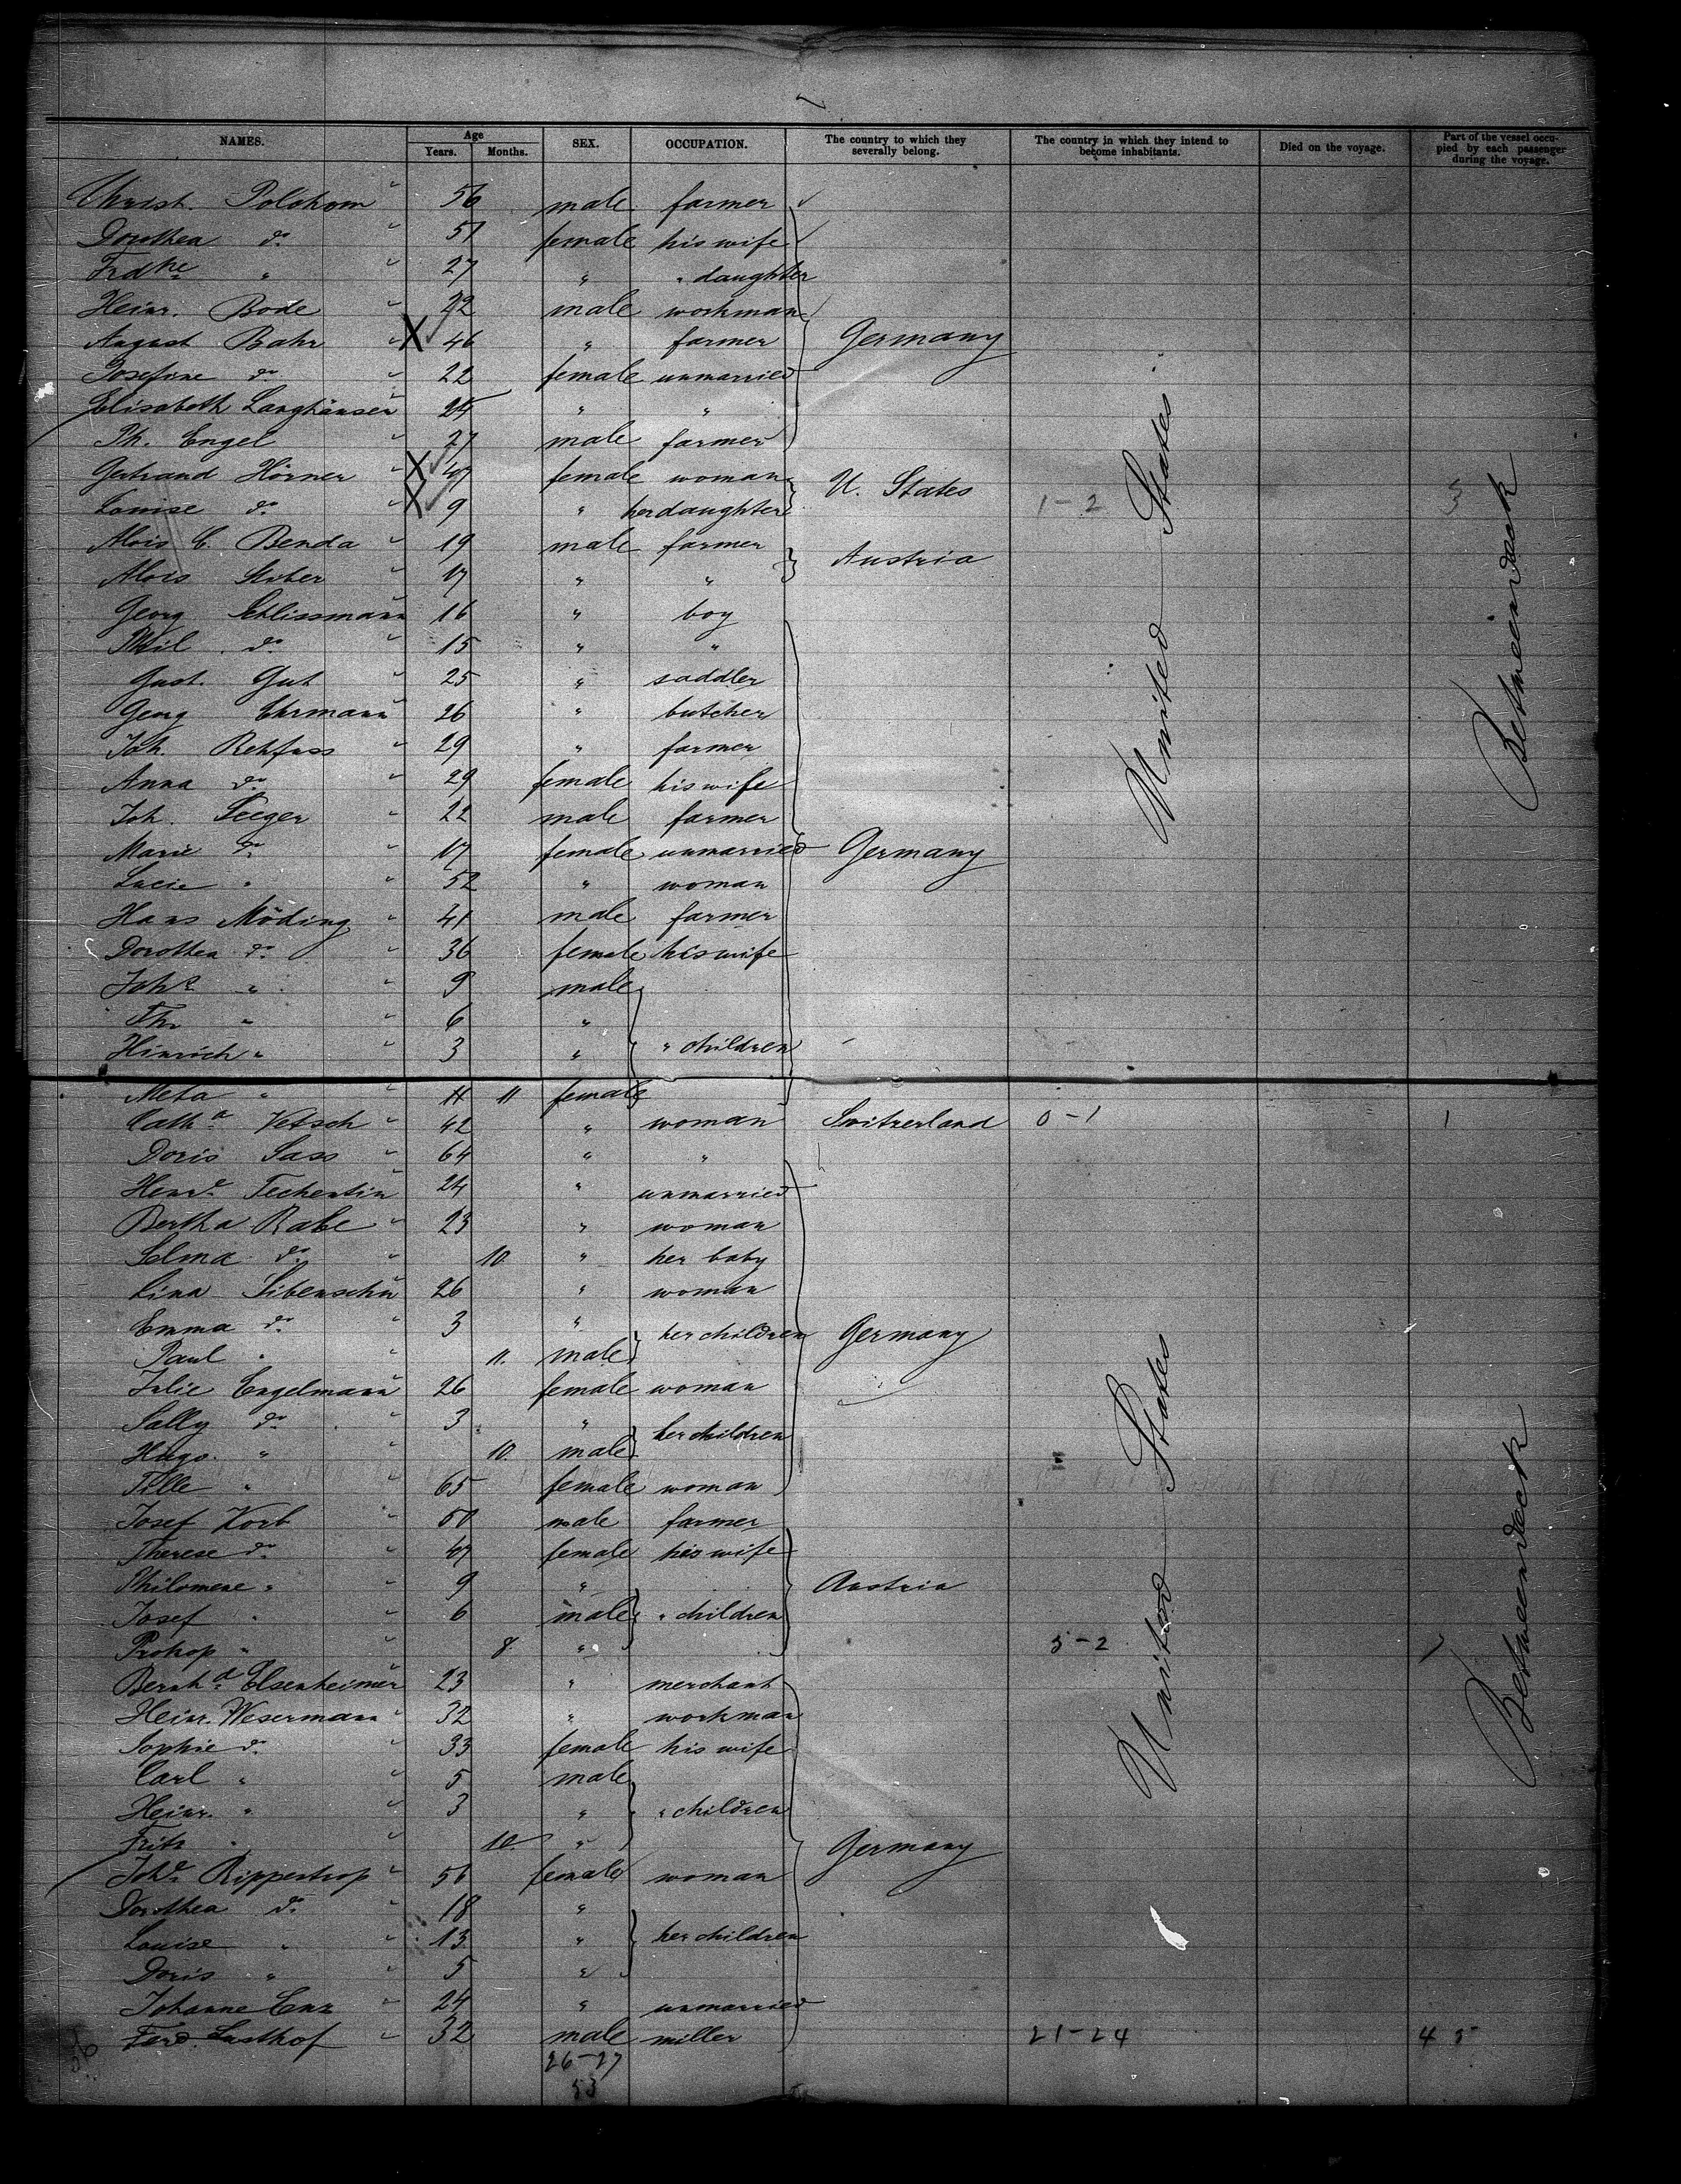 NAMES. Age Years. Months. SEX. OCCUPATION. The country to which they severally belong. The country in which they intend to become inhabitants. Died on the voyage. Part of the vessel occupied by each passenger during the voyage.
Christ. 56 male farmer
Dorothea do 51 female his wife
Frdke " 27 " " daughter
Heinr. Bode 22 male workman
August Bahr X 46 " farmer Germany
Josefine do 22 female unmarried
Elisabeth Langhänser 24 " "
Ph. Engel 27 male farmer
Hörner X 47 female woman U. States
Louise do X 9 " her daughter 1-2 3
Alois C. Benda 19 male farmer Austria
Alois Stiber 17 " "
Georg Schlissmann 16 " boy
do 15 " "
Gust. Gut 25 " saddler
Georg Ehrmann 26 " butcher
Joh. Rehfuss 29 " farmer
Anna do 29 female his wife
Joh. Seeger 22 male farmer
Marie do 17 female unmarried Germany
Lucie " 52 " woman
Hans Möding 41 male farmer
Dorothea do 36 female his wife
Johs " 9 male
Th. " 6 "
Hinrich " 3 " " children
Meta " 11 female
Catha Vetsch 42 " woman Switzerland 0-1 1
Doris Sass 64 " "
Techentin 24 " unmarried
Bertha Rabe 23 " woman
Selma do 10 " her baby
Lina Sibenschü 26 " woman
Emma do 3 " her children Germany
Paul " 11. male
Julie Engelmann 26 female woman
Sally do 3 " her children
Hugo. " 10. male
Tille " 65 female woman
Josef Korb 50 male farmer
Therese do 47 female his wife
Philomene " 9 " Austria
Josef " 6 male " children
Prokop " 8. " 5-2 7
Bernhd Elsenheimer 23 " merchant
Heinr. Wesermann 32 " workman
Sophie do 33 female his wife
Carl " 5 male
Heinr. " 3 " " children
Fritz " 10. " Germany
Rippentrop 56 female woman
Dorothea do 18 "
Louise " 13 " her children
Doris " 5 "
Johanne Enz 24 " unmarried
Ferd. Lusthof 32 male miller 21-24 45
26-27
53
United States
Betweendeck
United States
Betweendeck